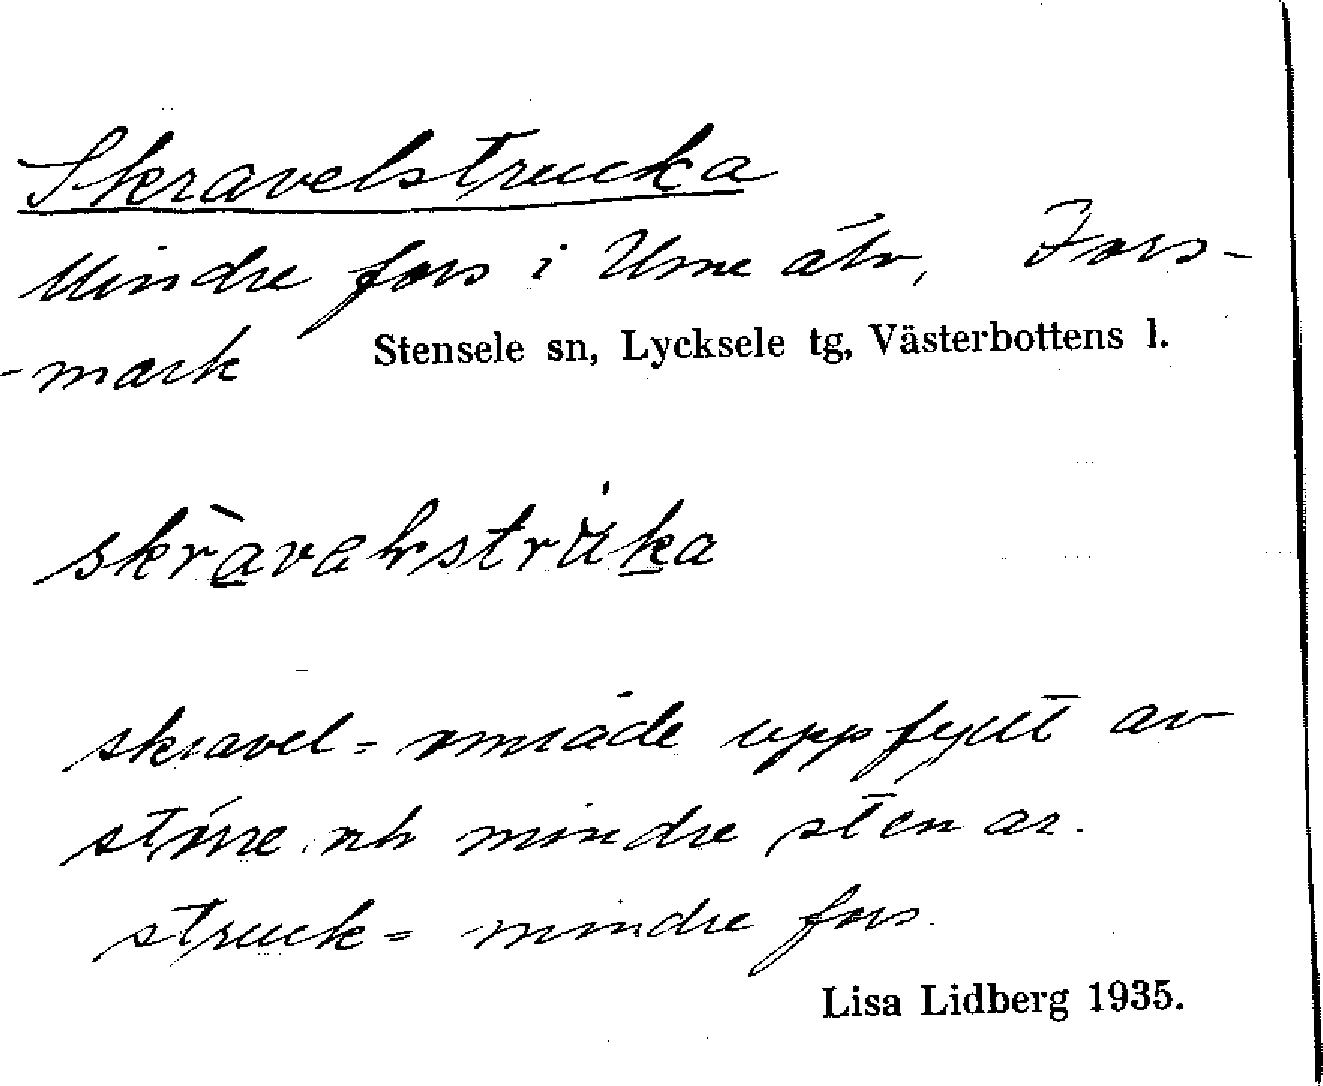 Skravelstrucka
Mindre fors i Ume älv, Fors-
-mark Stensele sn, Lycksele tg, Västerbottens l.
skravel = område uppfyllt av
större och mindre stenar.
struck = mindre fors.
Lisa Lidberg 1935.